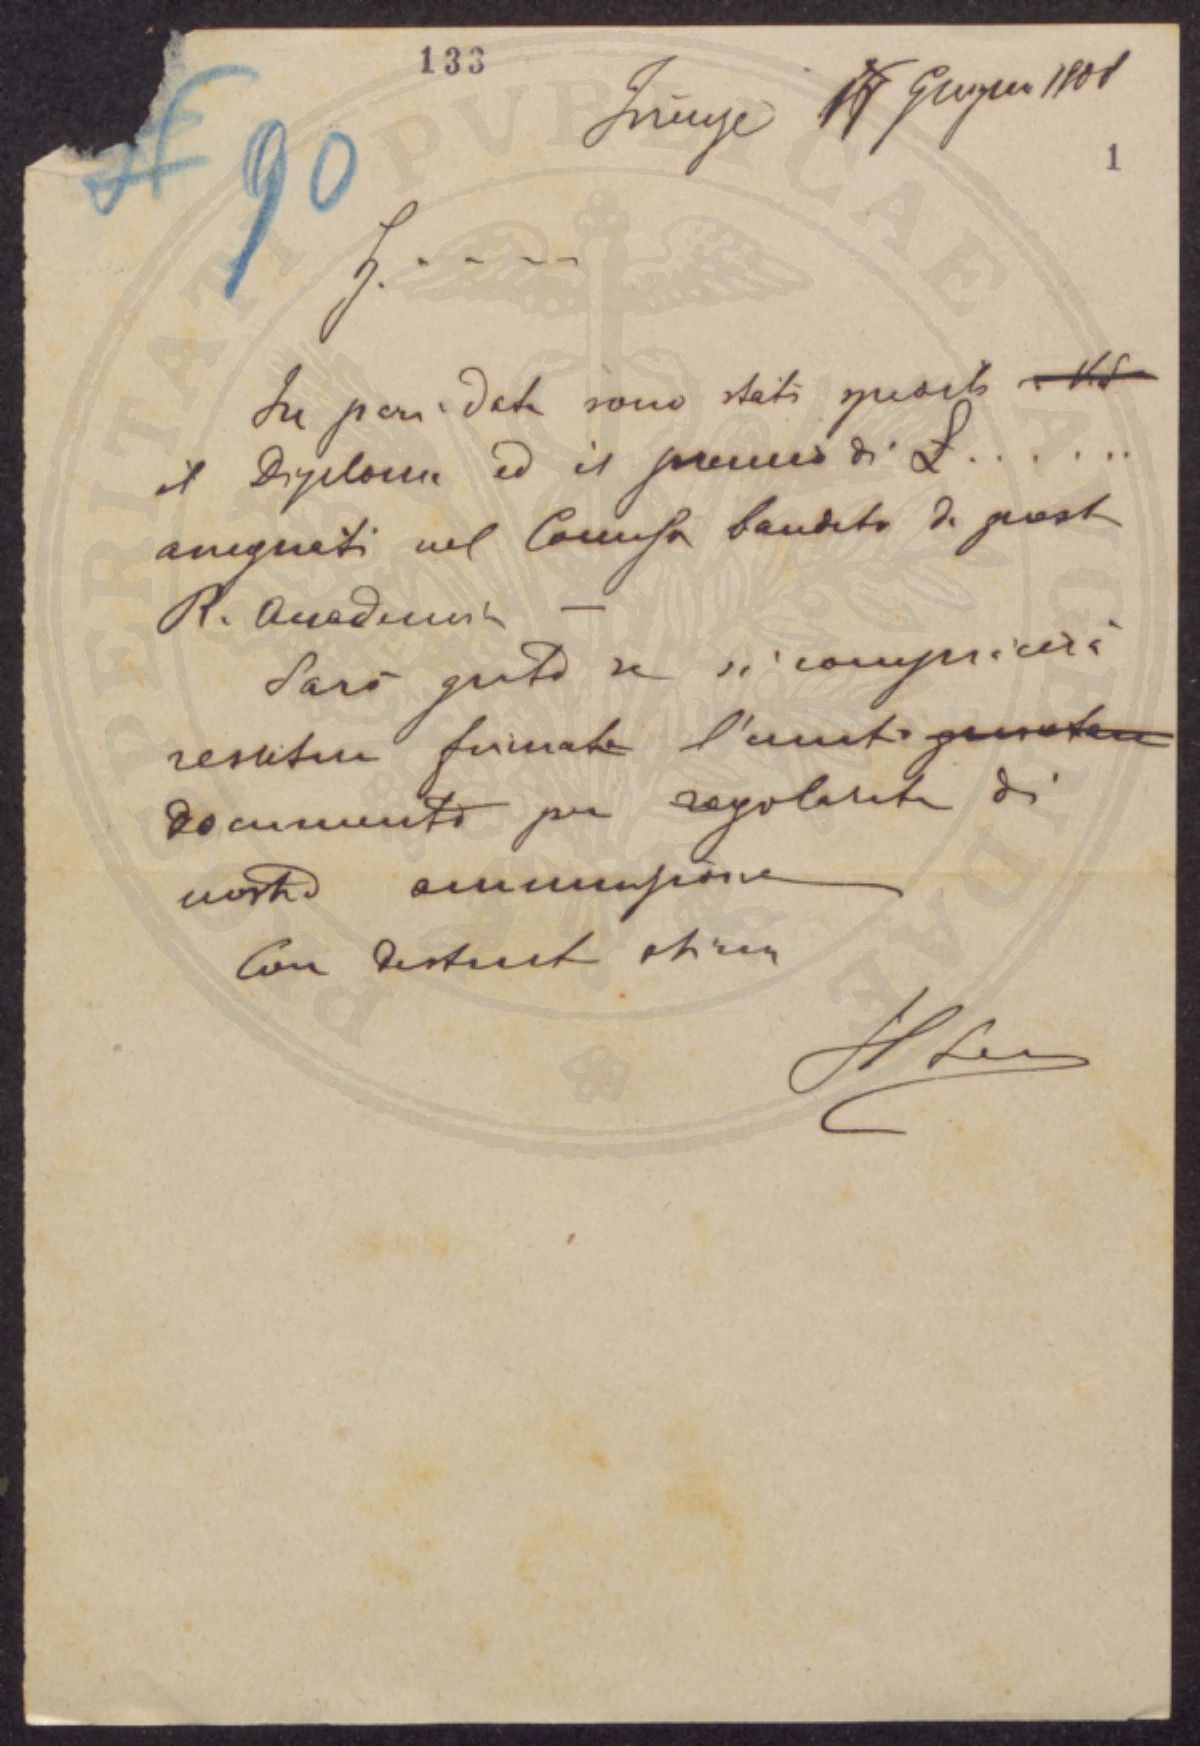 133
Firenze Giugno 1908
1
90
S. - - - -
In pari data sono stati spediti V.S.
il Diploma ed il premio di £ . . . . . .
assegnati nel Concorso bandito da questa
R. Accademia —
Sarò grato se si compiacerà
restituire firmato l'unito
documento per regolarità di
nostra amministrazione
Con distinta stima
Il Seg
PROSPERITATI PVBLICAE AVGENDAE